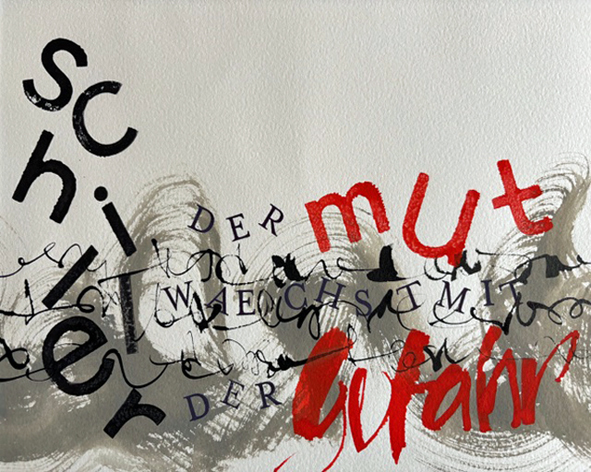 schiller
DER mut
WAECHST MIT
DER Gefahr